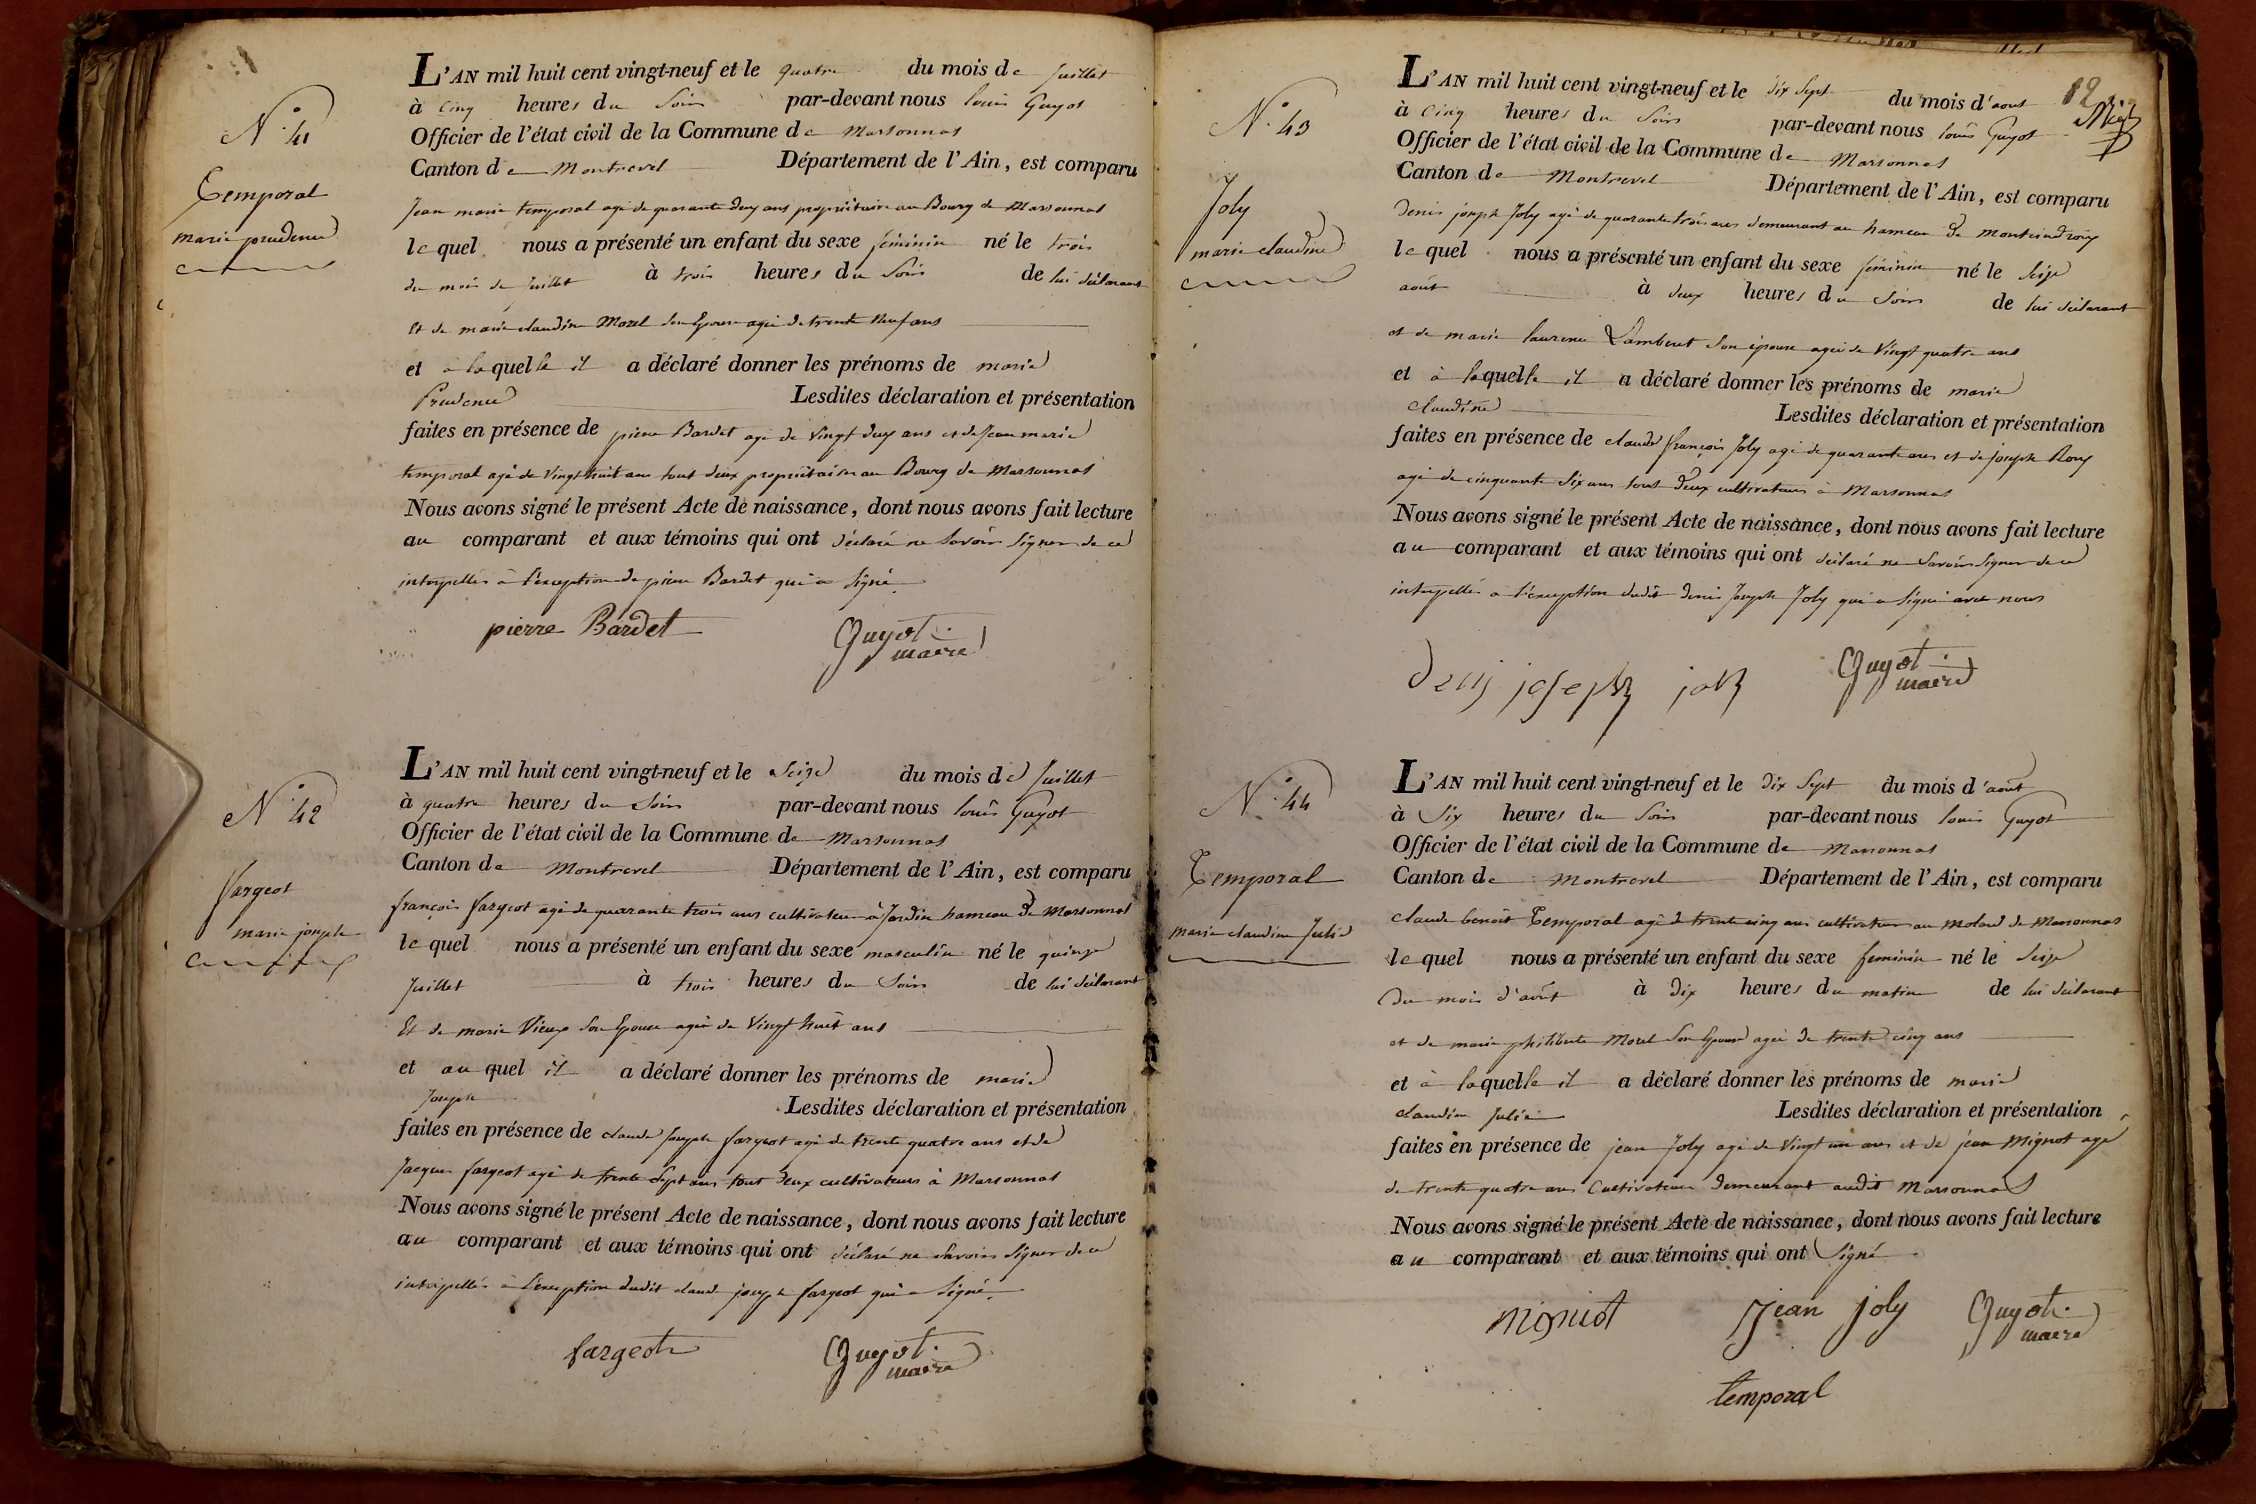 N.° 41
Temporal
marie prudence
L'AN mil huit cent vingt-neuf et le quatre du mois de Juillet
à cinq heures du Soir par-devant nous louis Guyot
Officier de l'état civil de la Commune de Marsonnas
Canton de Montrevel Département de l'Ain, est comparu
Jean marie temporal agé de quarante deux ans propriétaire au Bourg de Marsonnas
lequel nous a présenté un enfant du sexe féminin né le trois
du mois de Juillet à trois heures du Soir de lui déclarant
et de marie claudine Morel Son Epouse agée de trente Neuf ans
et à laquelle il a déclaré donner les prénoms de marie
Prudence Lesdites déclaration et présentation
faites en présence de pierre Bardet agé de vingt deux ans et de Jean marie
temporal agé de vingt huit ans tout deux propriétaires au Bourg de Marsonnas
Nous avons signé le présent Acte de naissance, dont nous avons fait lecture
au comparant et aux témoins qui ont déclaré ne Savoir Signer de ce
interpellés à l'exception de pierre Bardet qui a Signé.
pierre Bardet Guyot
maire
N.° 42
fargeot
marie joseph
L'AN mil huit cent vingt-neuf et le Seize du mois de Juillet
à quatre heures du Soir par-devant nous louis Guyot
Officier de l'état civil de la Commune de Marsonnas
Canton de Montrevel Département de l'Ain, est comparu
françois fargeot agé de quarante trois ans cultivateur à Jardin hameau de Marsonnas
lequel nous a présenté un enfant du sexe masculin né le quinze
Juillet à trois heures du Soir de lui déclarant
Et de marie Vieux Son Epouse agée de Vingt huit ans
et auquel il a déclaré donner les prénoms de marie
Joseph Lesdites déclaration et présentation
faites en présence de claude Joseph fargeot agé de trente quatre ans et de
Jacques fargeot agé de trente Sept ans tout deux cultivateurs à Marsonnas
Nous avons signé le présent Acte de naissance, dont nous avons fait lecture
au comparant et aux témoins qui ont déclaré ne Savoir Signer de ce
interpellés à l'exception dudit claude joseph fargeot qui a Signé.
fargeot Guyot
maire
12
N.° 43
Joly
marie claudine
L'AN mil huit cent vingt-neuf et le dix Sept du mois d'aout
à cinq heures du Soir par-devant nous louis Guyot
Officier de l'état civil de la Commune de Marsonnas
Canton de Montrevel Département de l'Ain, est comparu
Denis joseph Joly agé de quarante trois ans demeurant au hameau de
lequel nous a présenté un enfant du sexe féminin né le Seize
août à deux heures du Soir de lui déclarant
et de marie laurence Lambert Son épouse agée de Vingt quatre ans
et à laquelle il a déclaré donner les prénoms de marie
claudine Lesdites déclaration et présentation
faites en présence de claude françois Joly agé de quarante ans et de joseph Roux
agé de cinquante Six ans tout deux cultivateurs à Marsonnas
Nous avons signé le présent Acte de naissance, dont nous avons fait lecture
au comparant et aux témoins qui ont déclaré ne Savoir Signer de ce
interpellés a l'exception dudit Denis Joseph Joly qui a Signé avec nous
denis joseph joly Guyot
maire
N.° 44
Temporal
marie claudine Julie
L'AN mil huit cent vingt-neuf et le dix Sept du mois d'août
à Six heures du Soir par-devant nous louis Guyot
Officier de l'état civil de la Commune de Marsonnas
Canton de Montrevel Département de l'Ain, est comparu
Claude benoît Temporal agé de trente cinq ans cultivateur au molard de Marsonnas
lequel nous a présenté un enfant du sexe feminin né le Seize
du mois d'août à Dix heures du matin de lui déclarant
et de marie philiberte Morel Son Epouse agée de trente cinq ans
et à laquelle il a déclaré donner les prénoms de marie
claudine Julie Lesdites déclaration et présentation
faites en présence de jean Joly agé de vingt un ans et de jean Mignot agé
de trente quatre ans Cultivateurs demeurant audit Marsonnas
Nous avons signé le présent Acte de naissance, dont nous avons fait lecture
au comparant et aux témoins qui ont Signé
mignot Jean joly Guyot
maire
temporal